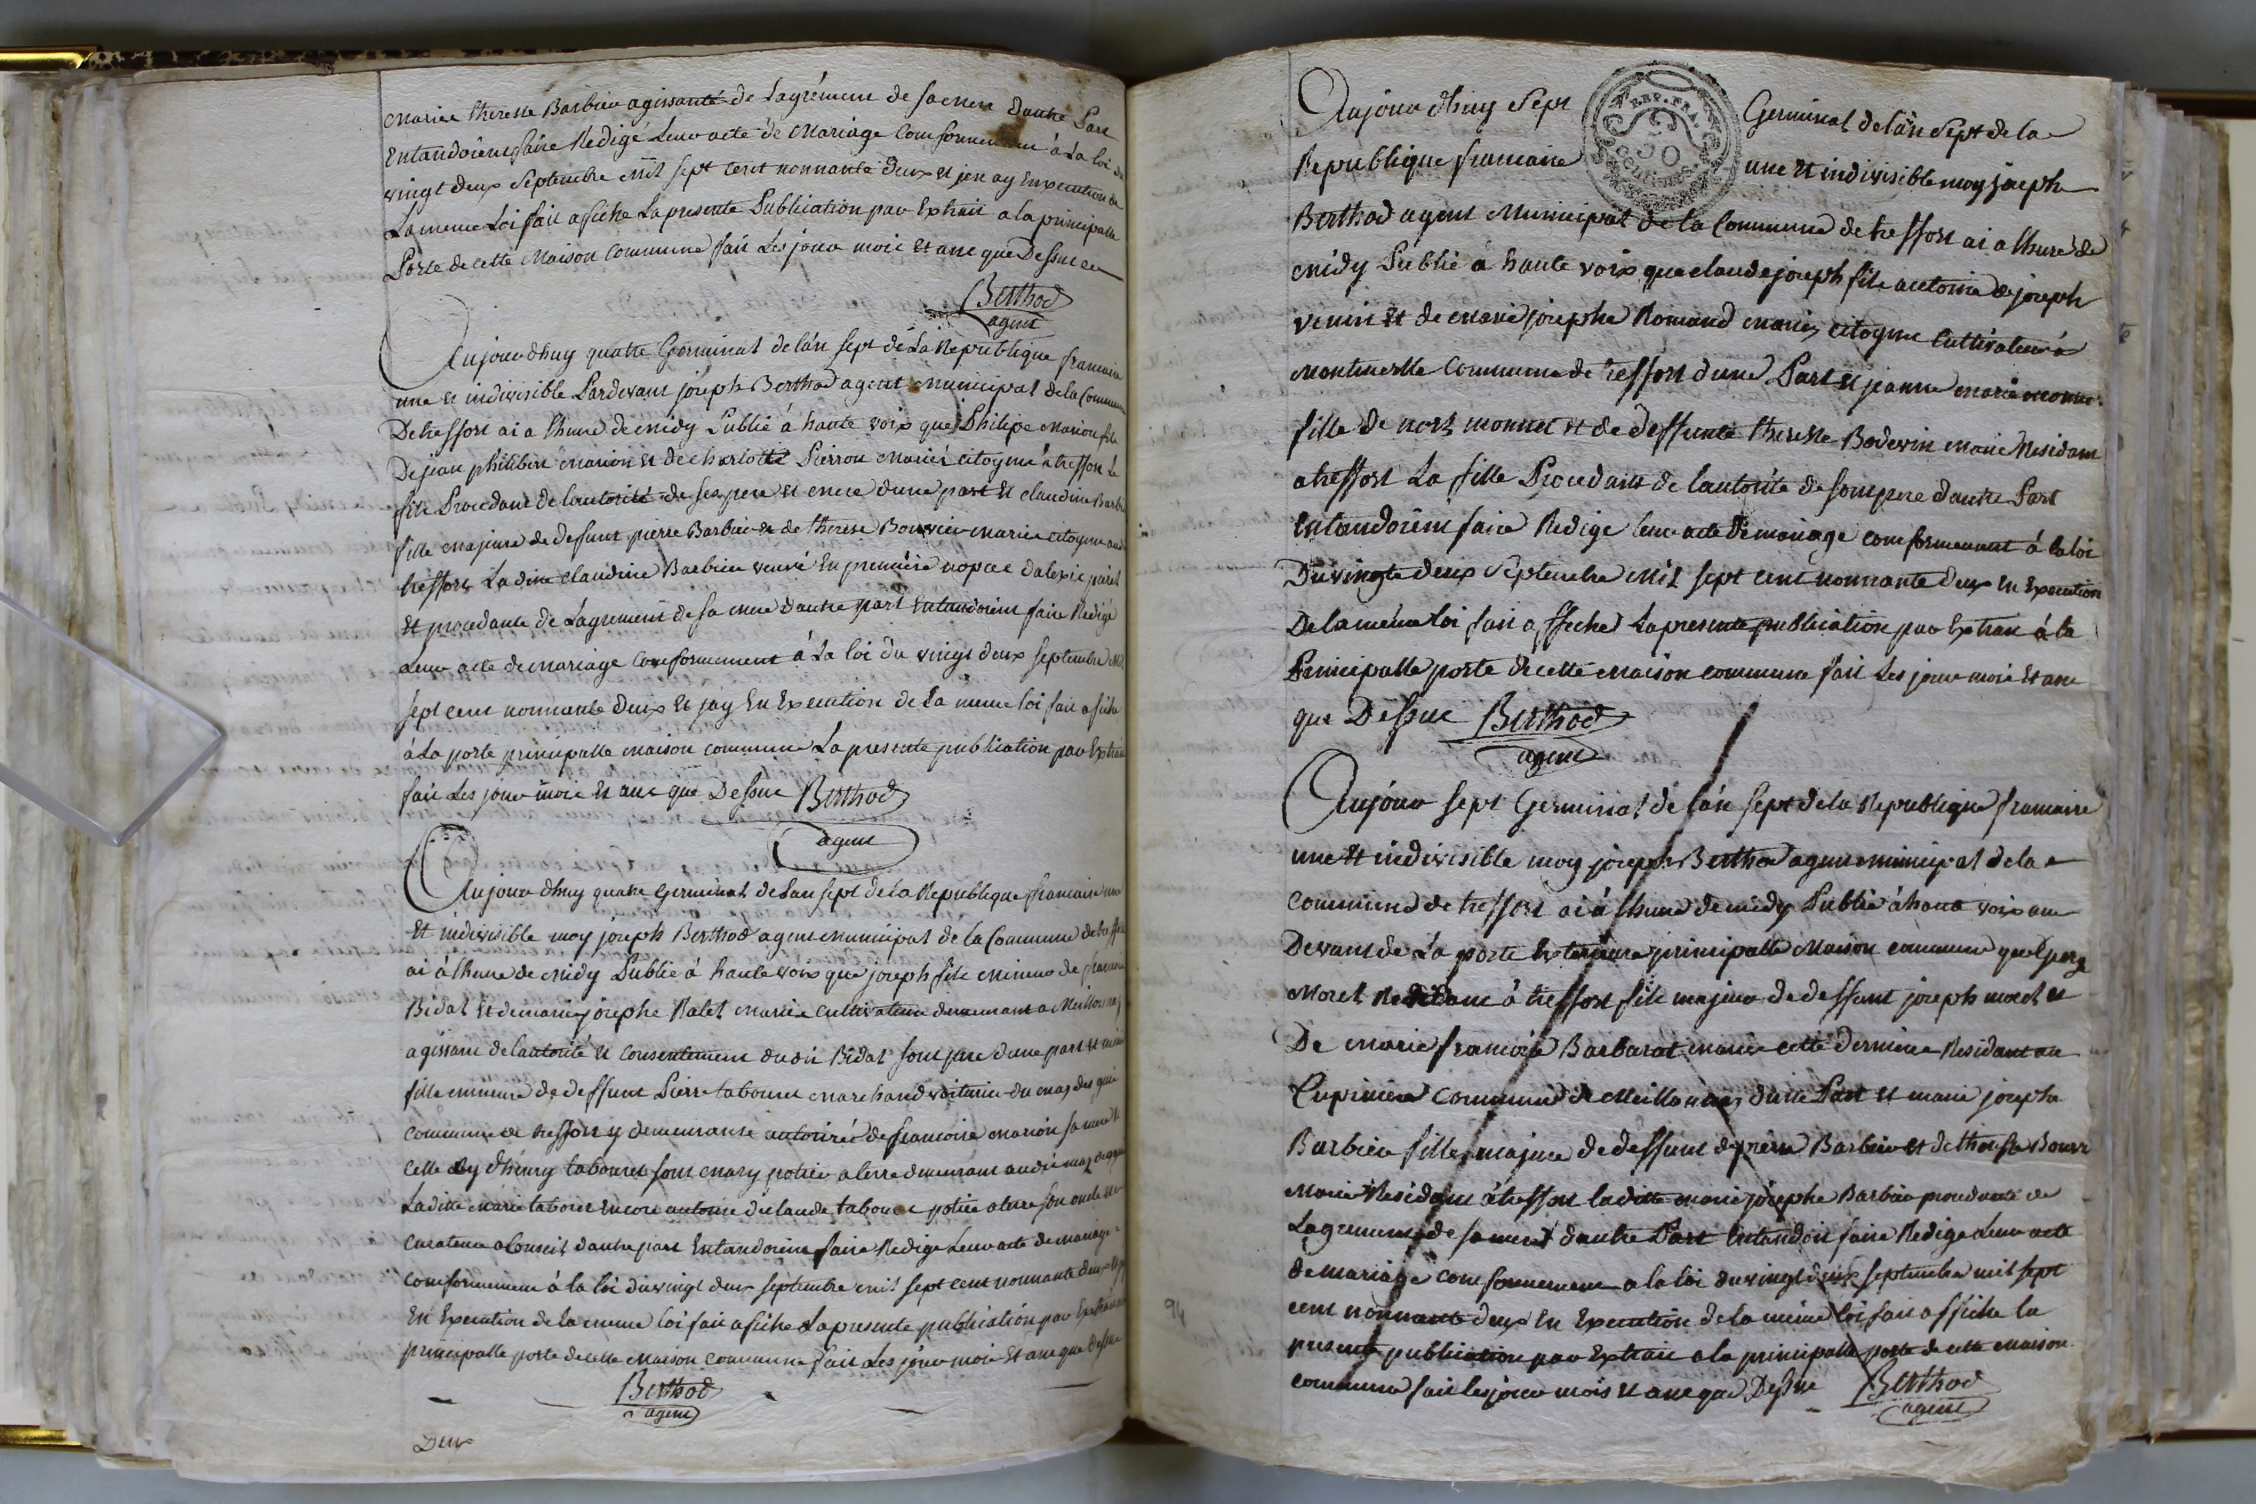 Marie therese Barbier agissante de Lagrément de sa mere dautre Part
Entandoient faire Redigé Leur acte de Mariage Conformement à La loi du
vingt deux Septembre Mil sept cent nonnante deux et jen ay En execution de
La meme Loi fait afiche La presente Publication par Extrait a la principalle
Porte de cette Maison Commune fait Les jour mois et ans que Dessus
Berthod
agent
Aujourdhuy quatre Germinal de lán sept de La Republique francaise
une et indivisible Pardevant joseph Berthod agent municipal de la Commune
De treffort ai a lhure de midy Publié à haute voix que Philipe Marion fils
De jean philibert Marion et de charlotte Pierron Mariés citoyens à treffort Le
fils Procedant de lautorité de ses pere et mere dune part et claudine Barbier
fille majeure de defunt pierre Barbier et de therese Bouvier marie citoyenne
treffort La dite claudine Barbier veuve En premiere nopce dalexie
et procedante de Lagrement de sa mere dautre part Entandoient faire Redigé
Leur acte de Mariage Conformement à La loi du vingt deux septembre Mil
sept cent nonnante deux et jay En Execution de La meme loi fait afiche
à La porte principalle maison commune La presente publication par Extrait
fait Les jour mois et ans que Dessus Berthod
agent
Aujourdhuy quatre Germinal de Lan sept de la Republique francaise une
Et indivisible moy joseph Berthod agent municipal de la Commune de treffort
ai à lhure de midy Publié à haute voix que joseph fils mineur de francois
Bidal et de marie josephe Ralet Mariés Cultivateur demeurant a Meillonna
agissant de lautorité et Consentement dudit Bidal sont pere dune part et marie
fille mineure de deffunt Pierre tabouret marchand voiturier du maz des
Commune de treffort y demeurante autorisée de francoise Marion sa mere et
Celle Cy dhenry tabouret sont Mary potier a terre demeurant au dit maz
Ladite Marie tabouret Encore autorisé de Claude tabouret potier a terre son oncle
Curateur a Conseil dautre part Entandoient faire Redige Leur acte de mariage
Conformement à la loi du vingt deux septembre mil sept cent nonnante deux
En Execution de la meme loi fait afiche La presente publication par Extrait
principalle porte de cette Maison Commune fait Les jour mois Et ans que Dessus
Berthod
agent
Deux
Aujourdhuy Sept Germinal de lán Sept de la
REP. FRA.
50
centimes
Republique francaise une Et indivisible moy joseph
Berthod agent Municipal de la Commune de treffort ai a lhure de
midy Publié à haute voix que claude joseph fils autorisé de joseph
venin et de marie josephe Romand mariés citoyens Cultivateur à
Montmerle Commune de treffort dune Part et jeanne marie monnet
fille de noel monnet et de deffunte therese Bodevin marié Residant
a treffort La fille Procedante de lautorité de son pere dautre Part
Entandoient faire Redige leur acte de mariage conformement à la loi
Du vingte deux Septembre Mil sept cent nonnante deux En Execution
De la même loi fait affiche La presente publication par Extrait à la
Principalle porte de cette Maison commune fait Les jour mois Et ans
que Dessus Berthod
agent
Aujour sept Germinal de lán sept de la Republique francaise
une Et indivisible moy joseph Berthod agent municipal de la
Commune de treffort ai à lhure de midy Publié à haute voix au
Devant de La porte Exterieure principalle Maison commune que
Morel Residant à treffort fils majeur de deffunt joseph morel et
De marie francoise Barbarat marie cette derniere Residant au
Cupiniere Commune de Meillonnas dune Part et marie josephe
Barbier fille majeure de deffunt de pierre Barbier et de therese Bouvi
Marie Residant à treffort laditte marie josephe Barbier procedante de
Lagrement de sa mere dautre Part Entandoit faire Redige Leur acte
de mariage conformement a la loi du vingt deux septembre mil sept
cent nonnante deux En Execution de la même loi fait affiche la
presente publication par Extrait a la principalle porte de cette maison
commune fait les jour mois et ans que Dessus Berthod
agent
94